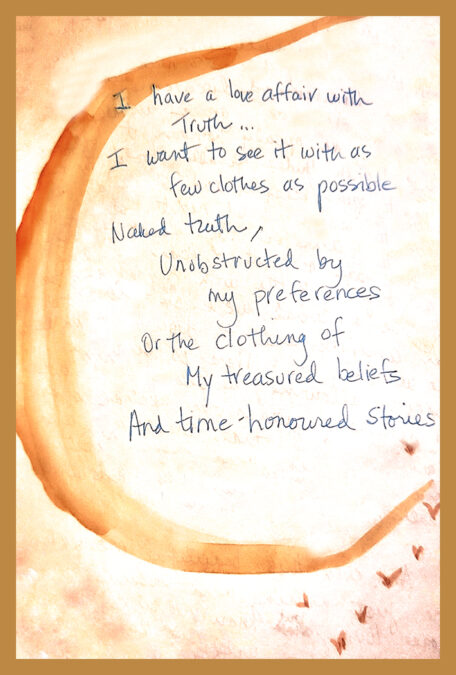 I have a love affair with
Truth...
I want to see it with as
few clothes as possible
Naked truth,
Unobstructed by
my preferences
Or the clothing of
My treasured beliefs
And time-honoured stories